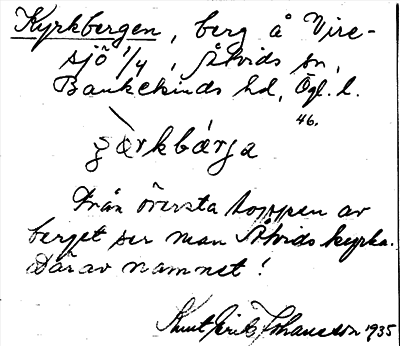 Kyrkbergen, berg å Vire-
sjö 1/4, Åtvids sn,
Bankekinds hd, Ögl. l.
46.
bærja
Från översta toppen av
berget ser man Åtvids kyrka.
Därav namnet!
Knut Erik Johansson 1935